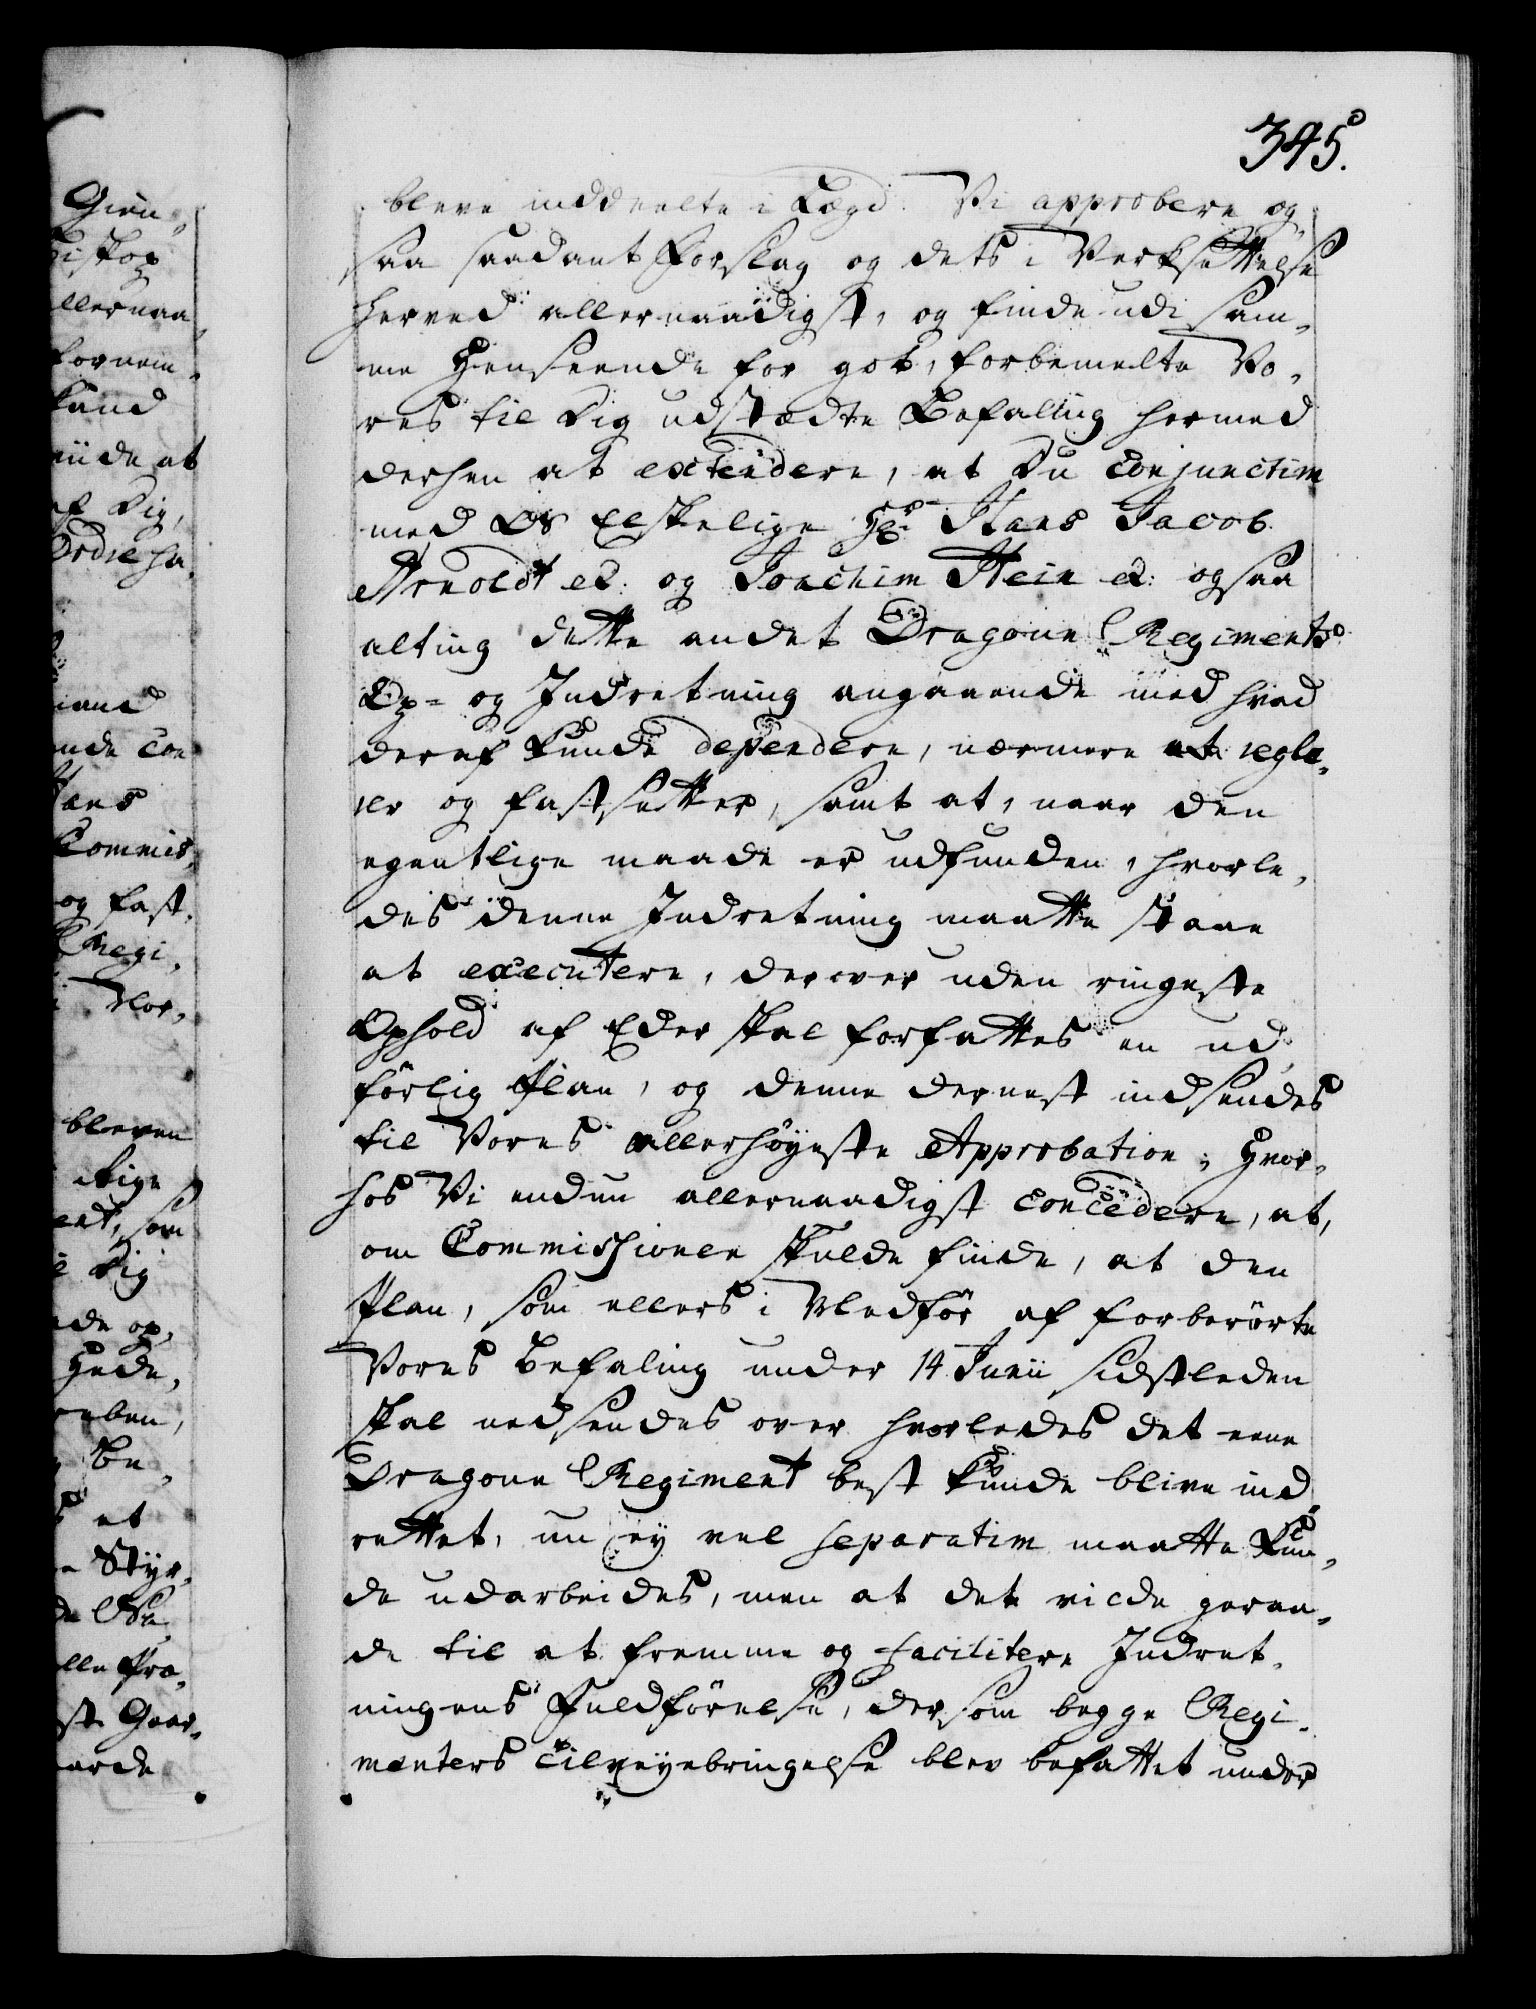 345.
bleve inddeelte i Lægd. Vi approbere og-
saa saadant Forslag og dets i Verksettelse
herved allernaadigst, og finde udi sam-
me Henseende for got, forbemelte Vo-
res til Dig udstædte Befalling hermed
derhen at extendere, at Du conjunctim
med Os Elskelige Hr. Hans Jacob
Arnoldt etc: og Joachim Hein etc: ogsaa
alting dette andet Dragoun Regiments
Op- og Indretning angaaende med hvad
deraf kunde dependere, nærmere at regle-
rer og fastsetter, samt at, naar den
egentlige maade er udfunden, hvorle-
des denne Indretning maatte staae
at executere, derover uden ringeste
Ophold af Eder skal forfattes en ud-
førlig Plan, og denne dernest indsendes
til Vores allerhøyeste Approbation; Hvor-
hos Vi endnu allernaadigst concedere, at,
om Commissionen skulde finde, at den
Plan, som ellers i Medfør af forberørte
Vores Befaling under 14 Junii sidstleden
skal nedsendes over hvorledes det eene
Dragoun Regiment best kunde blive ind-
rettet, nu ey vel separatim maatte kun-
de udarbeides, men at det vilde geraa-
de til at fremme og facilitere Indret-
ningens Fuldførelse, dersom begge Regi-
menters tilveyebringelse blev befattet under
Gien-
Biskop
allernaa-
fornem-
kand
finde at
af Dig,
Ordre ha-
mand
Hans
Commis-
og fast-
Regi-
i Nor-
bleven
som
Dig
op-
Hede-
et
Styr-
alle Pro-
Goar-